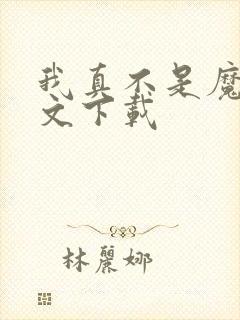 我真不是魔
文下载
林麗娜